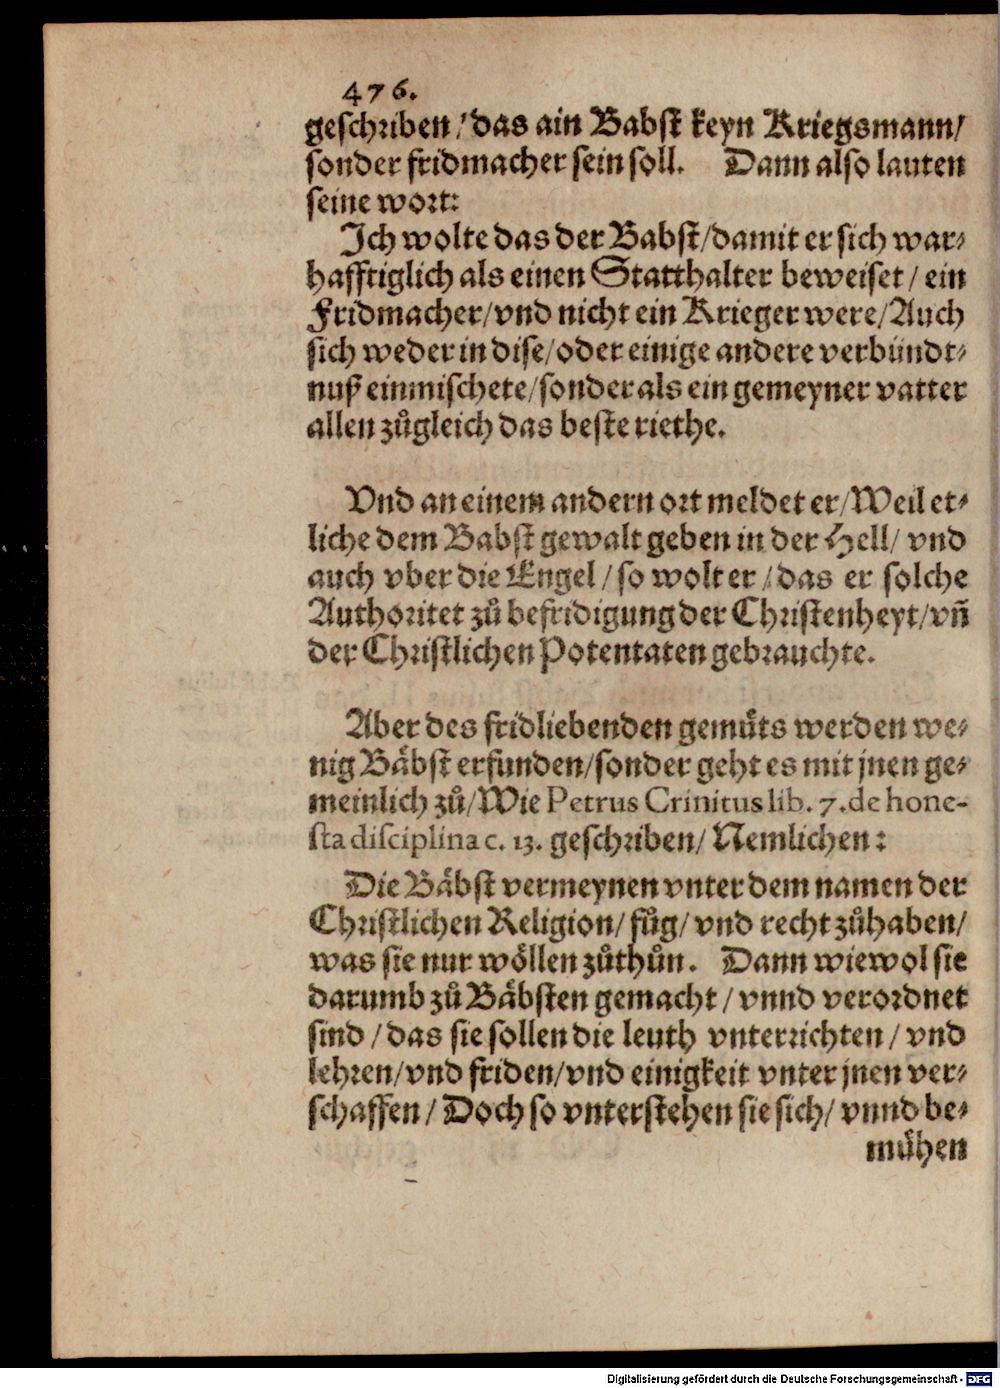 476.
geschriben/das ain Babst keyn Kriegsmann/
sonder fridmacher sein soll. Dann also lauten
seine wort:
Ich wolte das der Babst/damit er sich war-
hafftiglich als einen Statthalter beweiset/ ein
Fridmacher/vnd nicht ein Krieger were/Auch
sich weder in dise/oder einige andere verbündt-
nuß einmischete/sonder als ein gemeyner vatter
allen zůgleich das beste riethe.
Vnd an einem andern ort meldet er/Weil et-
liche dem Babst gewalt geben in der Hell/ vnd
auch vber die Engel/so wolt er/das er solche
Authoritet zů befridigung der Christenheyt/vñ
der Christlichen Potentaten gebrauchte.
Aber des fridliebenden gemüts werden we-
nig Bäbst erfunden/sonder geht es mit jnen ge-
meinlich zů/Wie Petrus Crinitus lib. 7. de hone-
sta disciplina c. 13. geschriben/ Nemlichen:
Die Bäbst vermeynen vnter dem namen der
Christlichen Religion/ fůg/ vnd recht zůhaben/
was sie nur wöllen zůthůn. Dann wiewol sie
darumb zů Bäbsten gemacht/ vnnd verordnet
sind/das sie sollen die leuth vnterrichten/ vnd
lehren/vnd friden/vnd einigkeit vnter jnen ver-
schaffen/ Doch so vnterstehen sie sich/ vnnd be-
mühen
Digitalisierung gefördert durch die Deutsche Forschungsgemeinschaft - DFG